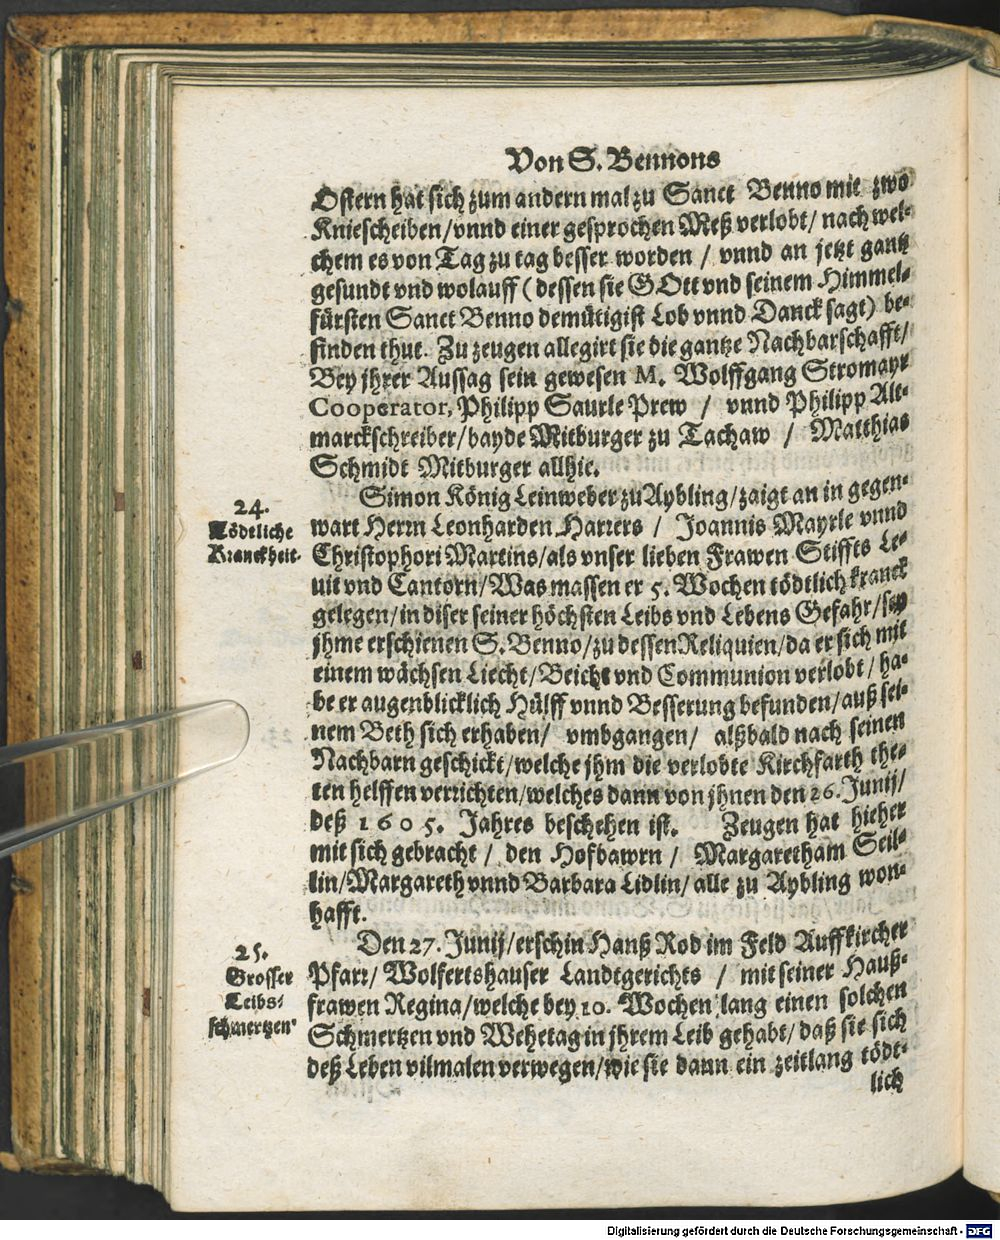 Von S. Bennons
Ostern hat sich zum andern mal zu Sanct Benno mit zwo
Kniescheiben/ vnnd einer gesprochen Meß verlobt/ nach wel-
chem es von Tag zu tag besser worden / vnnd an jetzt gantz
gesundt vnd wolauff (dessen sie GOtt vnd seinem Himmel-
fürsten Sanct Benno demütigist Lob vnnd Danck sagt) be-
finden thut. Zu zeugen allegirt sie die gantze Nachbarschafft/
Bey jhrer Aussag sein gewesen M. Wolffgang Stromayr
Cooperator, Philipp Saurle Prew / vnnd Philipp Alt-
marckschreiber/ bayde Mitburger zu Tachaw / Matthias
Schmidt Mitburger allhie.
24.
Tödtliche
Kranckheit.
Simon König Leinweber zu Aybling/ zaigt an in gegen-
wart Herrn Leonharden Harrers / Joannis Mayrle vnnd
Christophori Martins/ als vnser lieben Frawen Stiffts Le-
uit vnd Cantorn/ Was massen er 5. Wochen tödtlich kranck
gelegen/ in diser seiner höchsten Leibs vnd Lebens Gefahr/ sey
jhme erschienen S. Benno/ zu dessen Reliquien/ da er sich mit
einem wächsen Liecht/ Beicht vnd Communion verlobt/ ha-
be er augenblicklich Hülff vnnd Besserung befunden/ auß sei-
nem Beth sich erhaben/ vmbgangen/ alßbald nach seinen
Nachbarn geschickt/ welche jhm die verlobte Kirchfarth the-
ten helffen verrichten/ welches dann von jhnen den 26. Junij/
deß 1605. Jahres beschehen ist. Zeugen hat hieher
mit sich gebracht / den Hofbawrn / Margaretham Seil-
lin/ Margareth vnnd Barbara Lidlin/ alle zu Aybling won-
hafft.
25.
Grosser
Leibs-
schmertzen
Den 27. Junij/ erschin Hanß Rod im Feld Auffkircher
Pfarr/ Wolfertshauser Landtgerichts / mit seiner Hauß-
frawen Regina/ welche bey 10. Wochen lang einen solchen
Schmertzen vnd Wehetag in jhrem Leib gehabt/ daß sie sich
deß Leben vilmalen verwegen/ wie sie dann ein zeitlang tödt-
lich
Digitalisierung gefördert durch die Deutsche Forschungsgemeinschaft - DFG